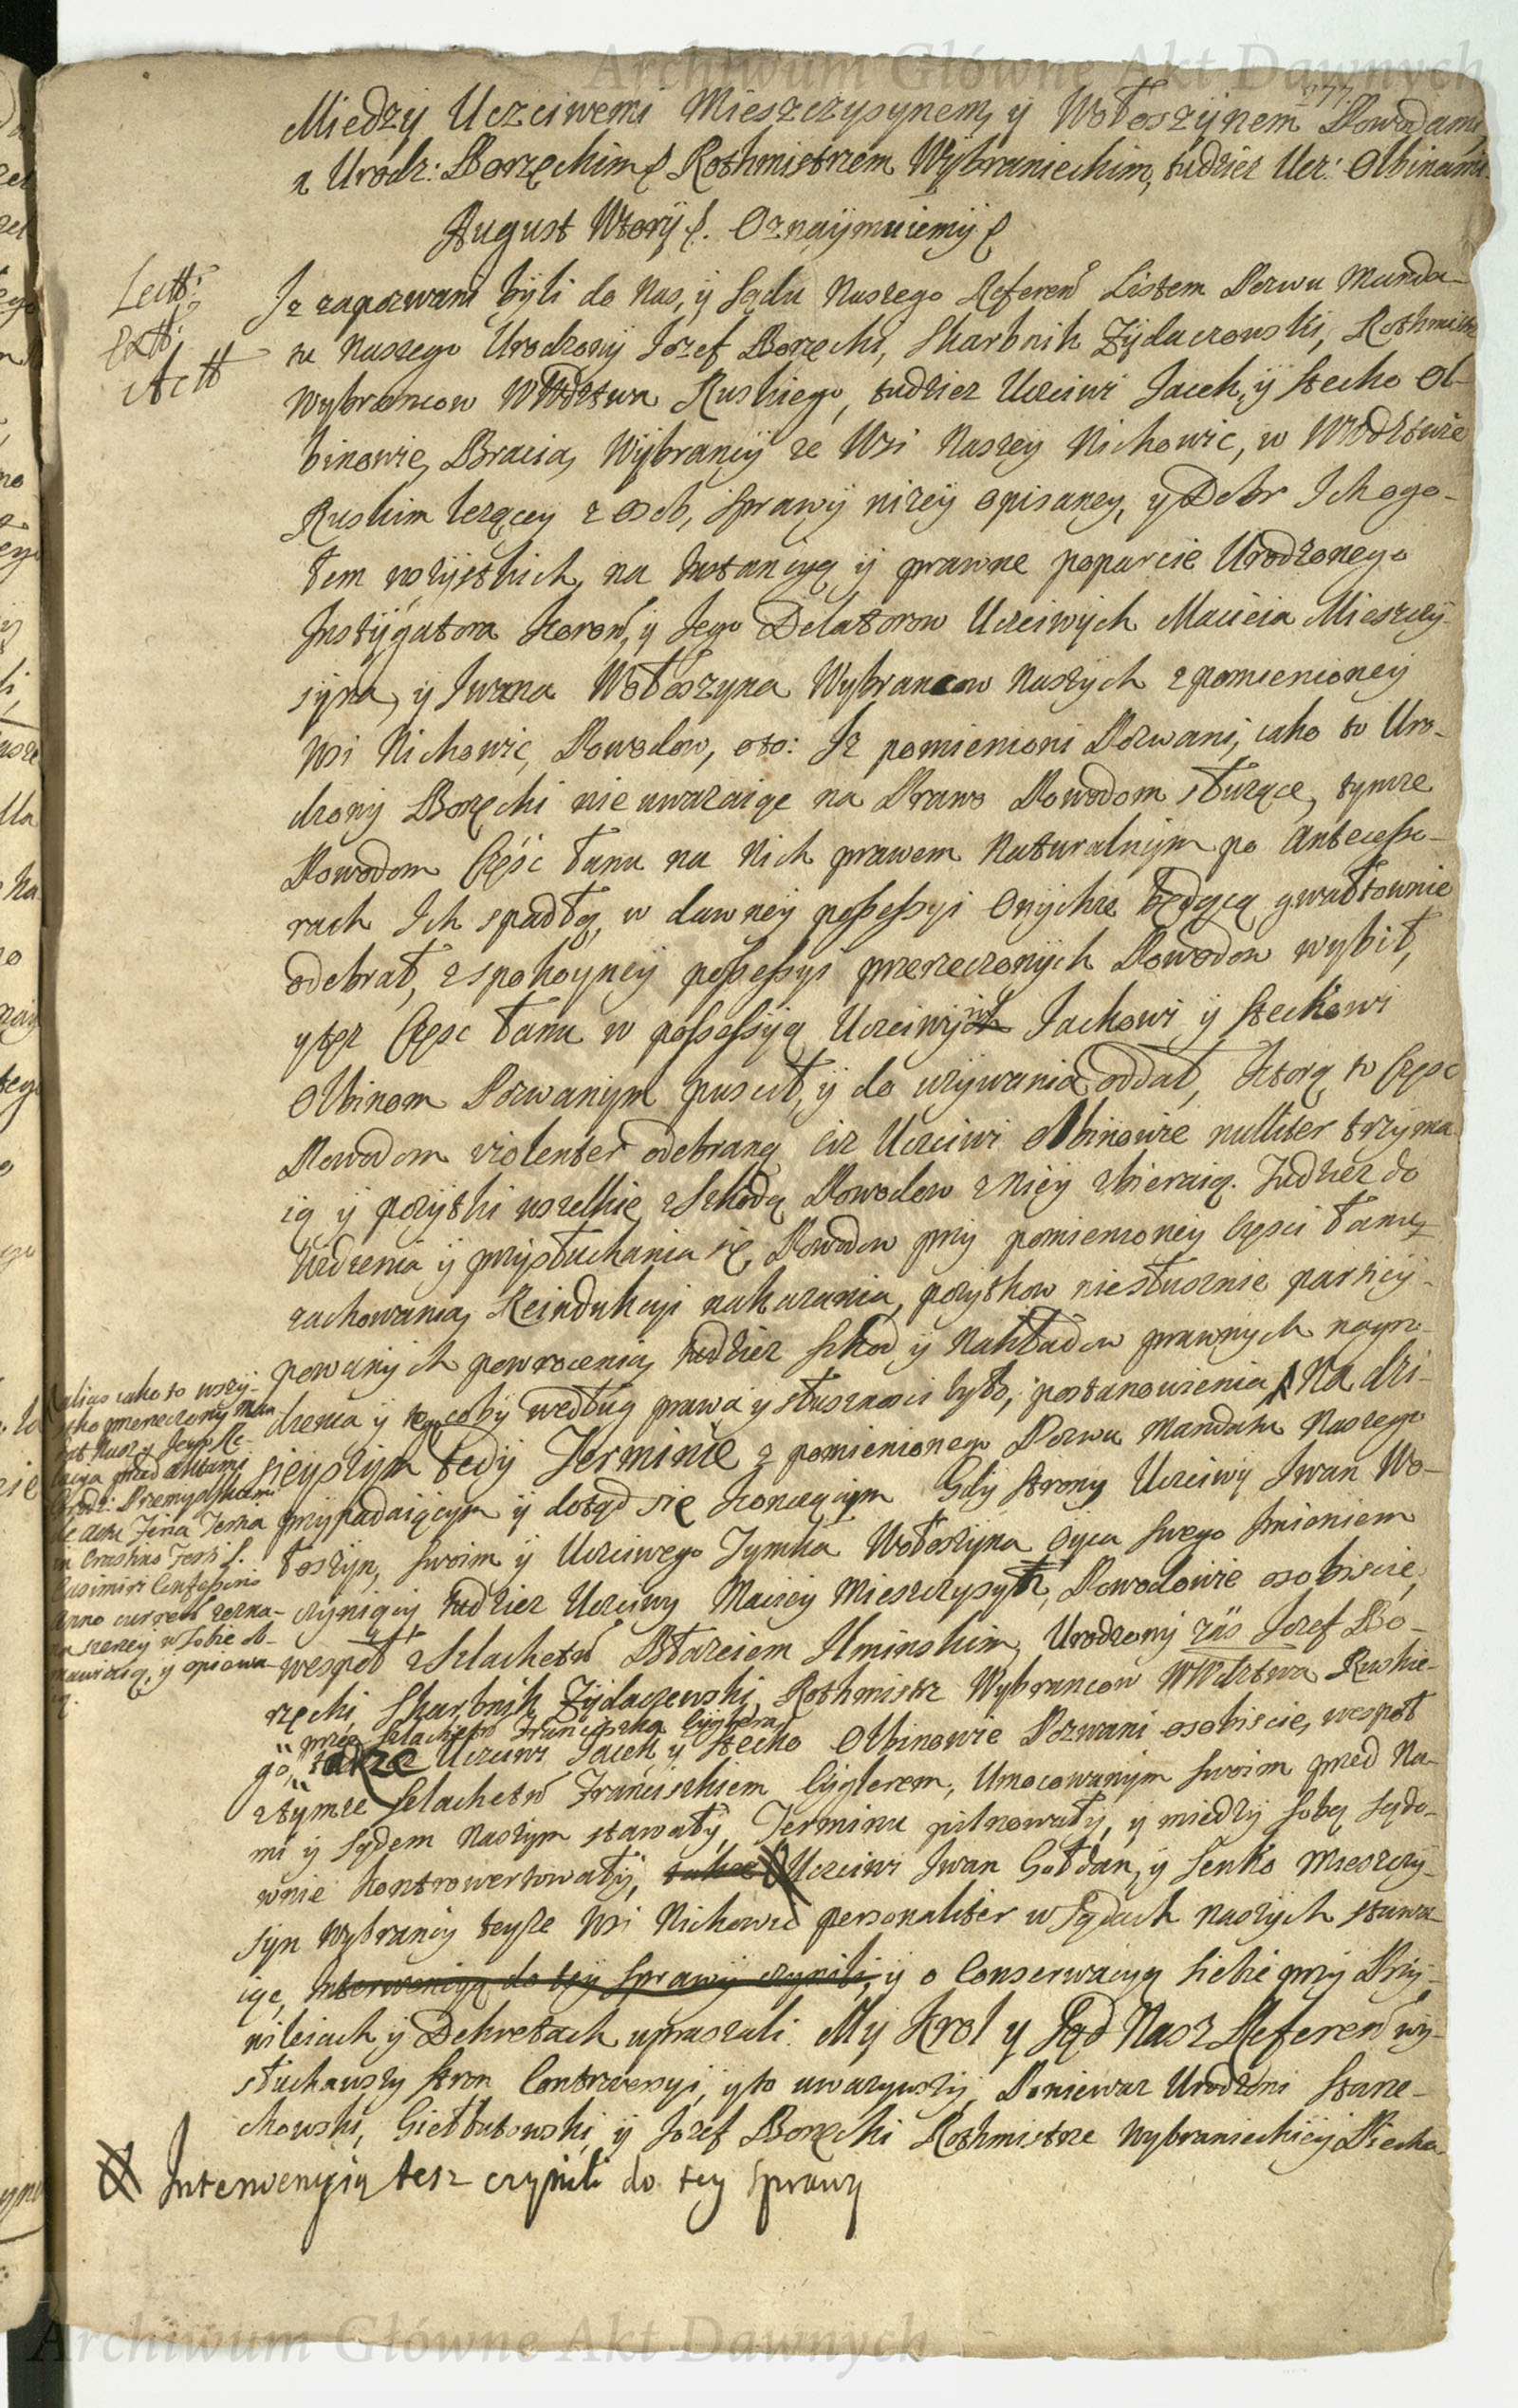 Archiwum Główne Akt Dawnych
277.
Między Uczciwemi Mieszczysynem, y Wołoszynem Powodami,
a Urodz: Borzęckim Rothmistrzem Wybranieckim, tudzież Ucz: Olbinami.
August Wtory. Oznaymuiemy
Lectt:
Extt:
Actt
Iż zapozwani byli do Nas, y Sądu Naszego Referen Listem Pozwu Manda-
tu Naszego Urodzony Iozef Borzęcki, Skarbnik Zydaczowski, Rothmistrz
Wybrancow Wwdztwa Ruskiego, tudziez Uczciwi Jacek, y Stecko Ol-
binowie, Bracia, Wybrancy ze Wsi Naszey Nichowic, w Wwodztwie
Ruskim lezącey z Osob, Sprawy nizey opisaney, y Dobr Ich ogo-
łem wszystkich, na Instancyą y prawne poparcie Urodzonego
Instygatora Koron, y Jego Delatorow Uczciwych Macieia Mieszczy-
syna, y Iwana Wołoszyna Wybrancow Naszych z pomienioney
Wsi Nichowic, Powodow, oto: Iż pomienioni Pozwani, iako to Uro-
dzony Borzęcki nie uwazaiąc na Prawo Powodom słuzące, tymze
Powodom Częsc Łanu na Nich prawem Naturalnym po Antecesso-
rach Ich spadłą, w dawney possessyi Onychze będącą gwałtownie
odebrał, z spokoyney possessyi przerzeczonych Powodow wybił,
y tęz Częsc Łanu w possessyią Uczciwym Jackowi y Steckowi
Olbinom Pozwanym puscił, y do uzywania oddał, Ktorą to Częsc
Powodom violenter odebraną ciz Uczciwi Olbinowie nulliter trzyma-
ią y pozytki wszelkie z Szkodą Powodow z Niey zbieraią. Tudziez do
Widzenia y przysłuchania się, Powodow przy pomienioney Częsci Łanu
zachowania, Reindukcyi nakazania, pozytkow niesłusznie partycy-
powanych powrocenia, tudziez Szkod y Nakładow prawnych nagro-
dzenia y tego coby według prawa y słusznosci było, postanowienia. Na dzi-
sieyszym tedy Terminie z pomienionego Pozwu Mandatu Naszego
przypadaiącym y dotąd się konczącym Gdy strony Uczciwy Iwan Wo-
łoszyn, Swoim y Uczciwego Tymka Wołoszyna Oyca Swego Imieniem
czyniący tudziez Uczciwy Maciey Mieszczysyn, Powodowie osobiscie,
wespoł z Szlachetn Błazeiem Ilminskim, Urodzony zas Iozef Bo-
rzęcki Skarbnik Zydaczewski, Rothmistrz Wybrancow Wwdztwa Ruskie-
przez Szlachetn Franciszka Cyglera
go, także Uczciwi Jacek y Stecko Olbinowie Pozwani osobiscie, wespoł
z tymze Szlachetn Franciszkiem Cyglerem, Umocowanym Swoim przed Na-
mi y Sądem Naszym stawały, Terminu pilnowały, y między Sobą Sądo-
wnie kontrowertowały, także Uczciwi Iwan Gołdan, y Senko Mieszczy-
syn Wybrancy teyze Wsi Nichowic personaliter w Sądach Naszych stawa-
iąc, Interwencyą do tey Sprawy czynili, y o Conserwacyą Siebie przy Przy-
wileiach y Dekretach upraszali. My Krol y Sąd Nasz Referen wy-
słuchawszy Stron Controwersyi, y to uwazywszy, Poniewaz Urodzeni Starze-
chowski, Giełbutowski, y Jozef Borzęcki Rothmistrze Wybranieckiey Piecho-
Interwencyią tesz czynili do tey Sprawy
alias iako to wszy-
stko przerzeczony Man-
dat Naszy Iego Re-
lacya przed Aktami
Grodz: Przemyskiemi
de actu Feria
in Crastino Festi S.
Casimiri Confessoris
Anno curren zezna-
na szerzey w Sobie o-
mawiaią, y opiewa-
ią.
Archiwum Główne Akt Dawnych